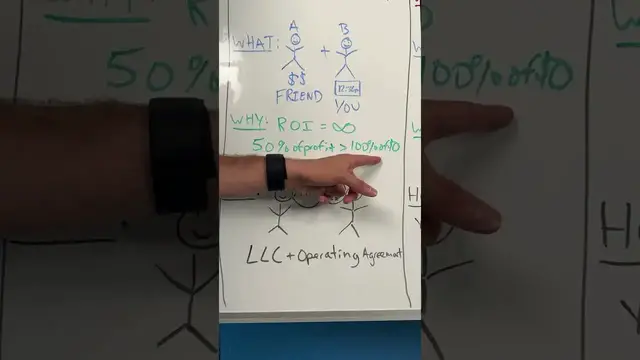 A B
WHAT: +
$$
FRIEND YOU
WHY: ROI = ∞
50% of profit > 100% of $0
LLC + Operating Agreement